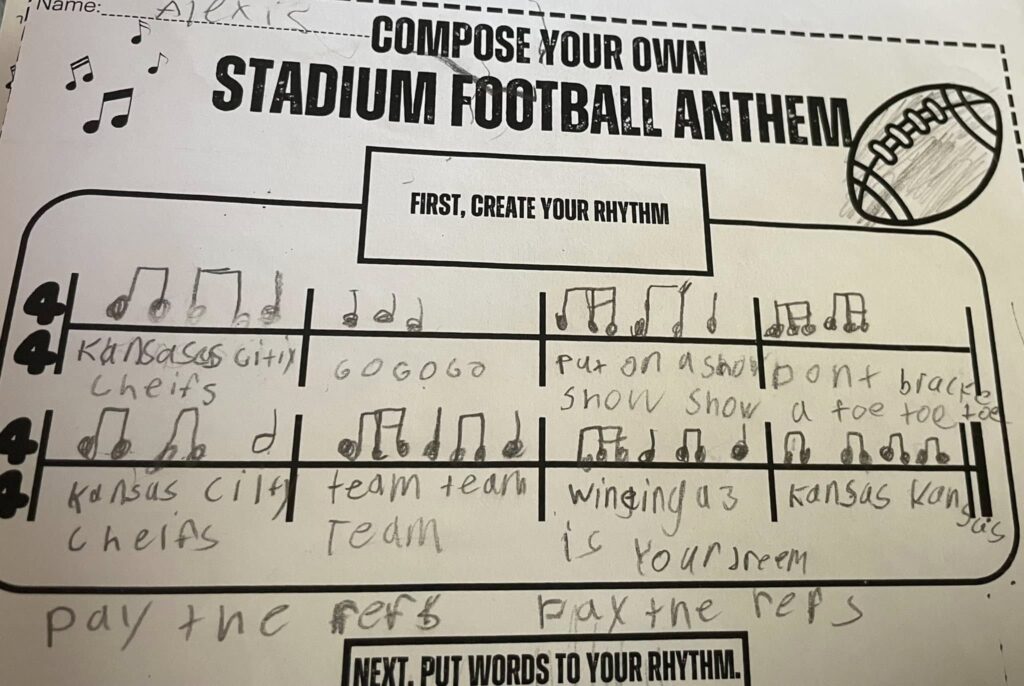 Name: Alexis
COMPOSE YOUR OWN
STADIUM FOOTBALL ANTHEM
FIRST, CREATE YOUR RHYTHM
4
4
Kansas citiy
cheifs
GO GO GO
Put on a show
show show
Dont bracke
a toe toe toe
4
4
Kansas cilty
cheifs
team team
Team
winging a 3
is your dreem
Kansas Kansas
pay the refs pay the refs
NEXT, PUT WORDS TO YOUR RHYTHM.